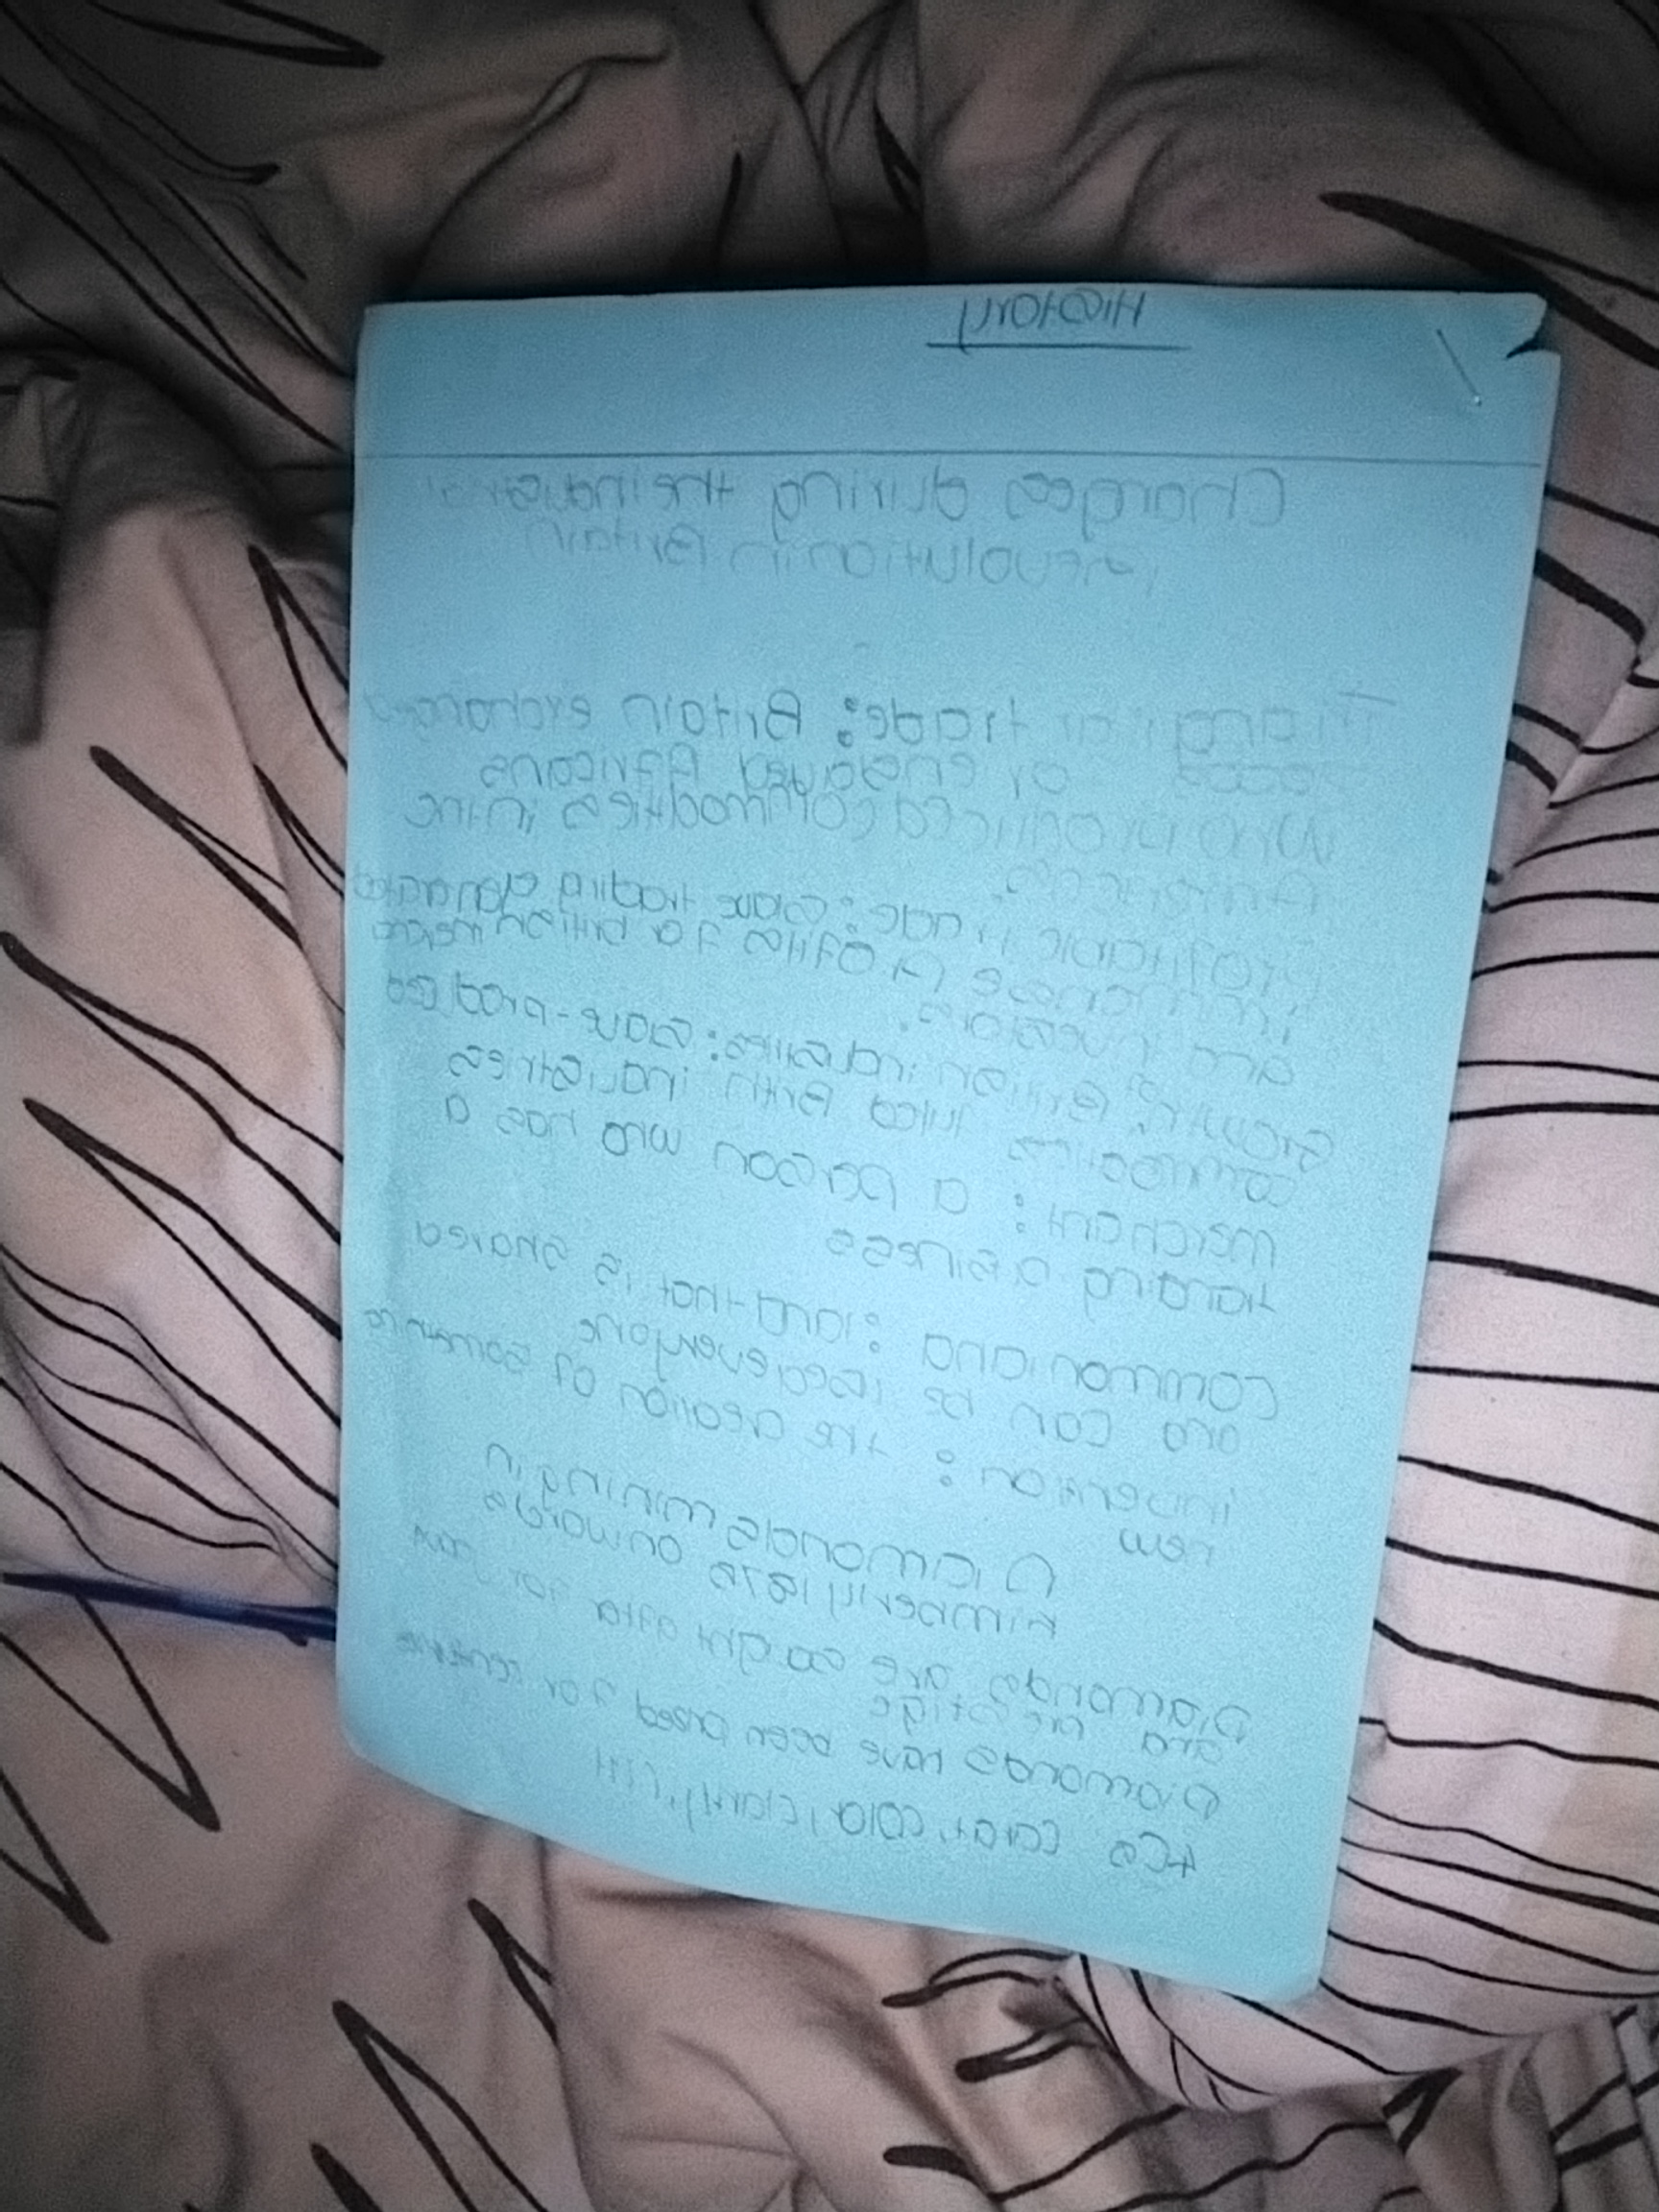 History
Changes during the industrial
revolution in Britain
Triangular trade: Britain exchanged
or enslaved Africans
who produced commodities in the
Americas.
Profitable trade: slave trading generated
immense profits for british
and investors.
Growth of British industries: slave-produced
commodities British industries
merchant: a person who has a
trading business
common land: land that is shared
and can be used everyone
invention: the creation of something
new
Diamonds mining in
Kimberly 1867 onwards
Diamonds are sought after for
and prestige
Diamonds have been prized for centuries
4Cs carat, color, clarity, cut